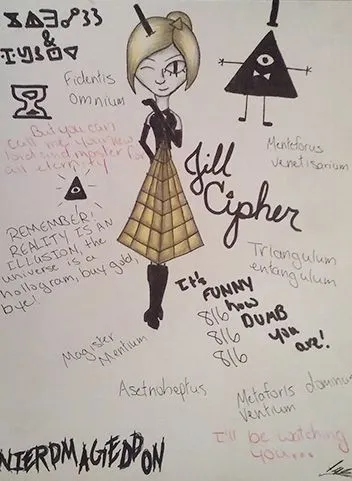 &
Fidentis
Omnium
But you can
call me your new
lord and master for
all eternity
Menteforus
venetisarium
Jill
Cipher
REMEMBER!
REALITY IS AN
ILLUSION, the
universe is a
hologram, buy gold,
bye!
Triangulum
entangulum
It's
FUNNY
how
DUMB
you
are!
816
816
816
Magister
Mentium
Asetnoheptus
Metaforis dominus
ventium
I'll be watching
you...